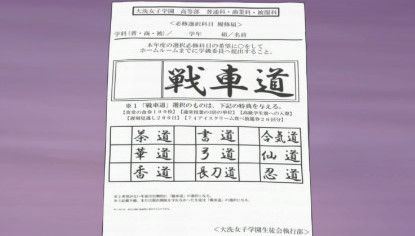 大洗女子学園 高等部 普通科・商業科・被服科
<必修選択科目 履修届>
学科(普・商・被)/ 学年 組/名前
本年度の選択必修科目の希望に○をして
ホームルームまでに学級委員へ提出すること。
戦車道
※1「戦車道」選択のものは、下記の特典を与える。
【食堂の食券100枚】【通常授業の3倍の単位】
茶道 書道 合気道
華道 弓道 仙道
香道 長刀道 忍道
<大洗女子学園生徒会執行部>